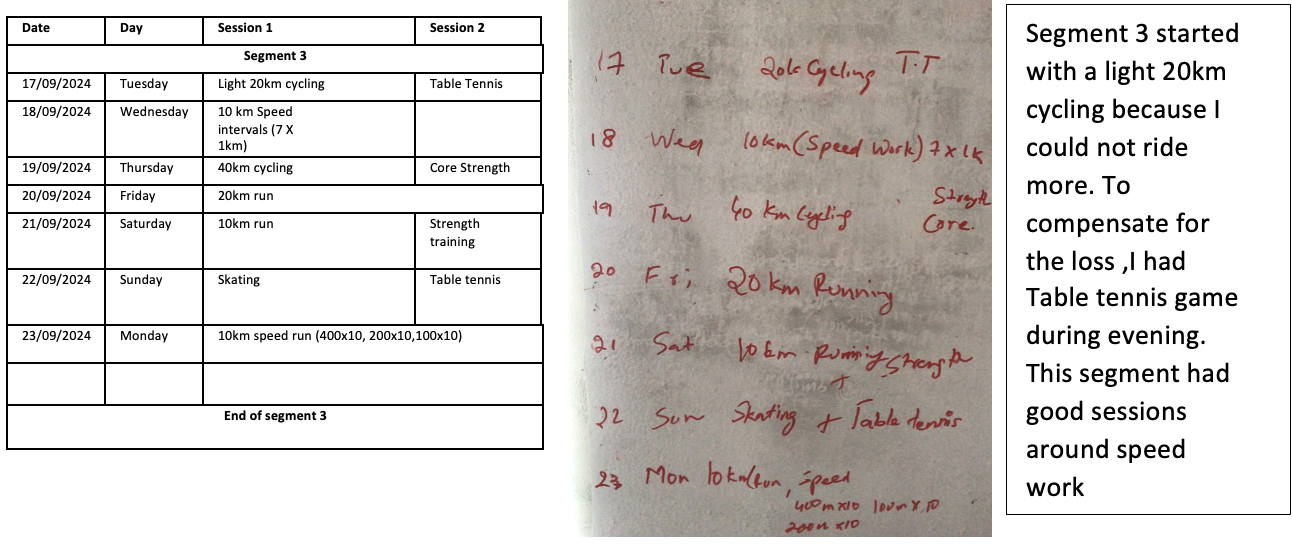 Date Day Session 1 Session 2
Segment 3
17/09/2024 Tuesday Light 20km cycling Table Tennis
18/09/2024 Wednesday 10 km Speed
intervals (7 X
1km)
19/09/2024 Thursday 40km cycling Core Strength
20/09/2024 Friday 20km run
21/09/2024 Saturday 10km run Strength
training
22/09/2024 Sunday Skating Table tennis
23/09/2024 Monday 10km speed run (400x10, 200x10,100x10)
End of segment 3
17 Tue 20k Cycling T.T
18 Wed 10km (Speed Work) 7 x 1k
19 Thu 40 km Cycling Strength
Core.
20 Fri, 20 km Running
21 Sat 10 km Running Strength
+
22 Sun Skating + Table tennis
23 Mon 10km Run, Speed
400m x10 100m x 10
200m x10
Segment 3 started
with a light 20km
cycling because I
could not ride
more. To
compensate for
the loss ,I had
Table tennis game
during evening.
This segment had
good sessions
around speed
work